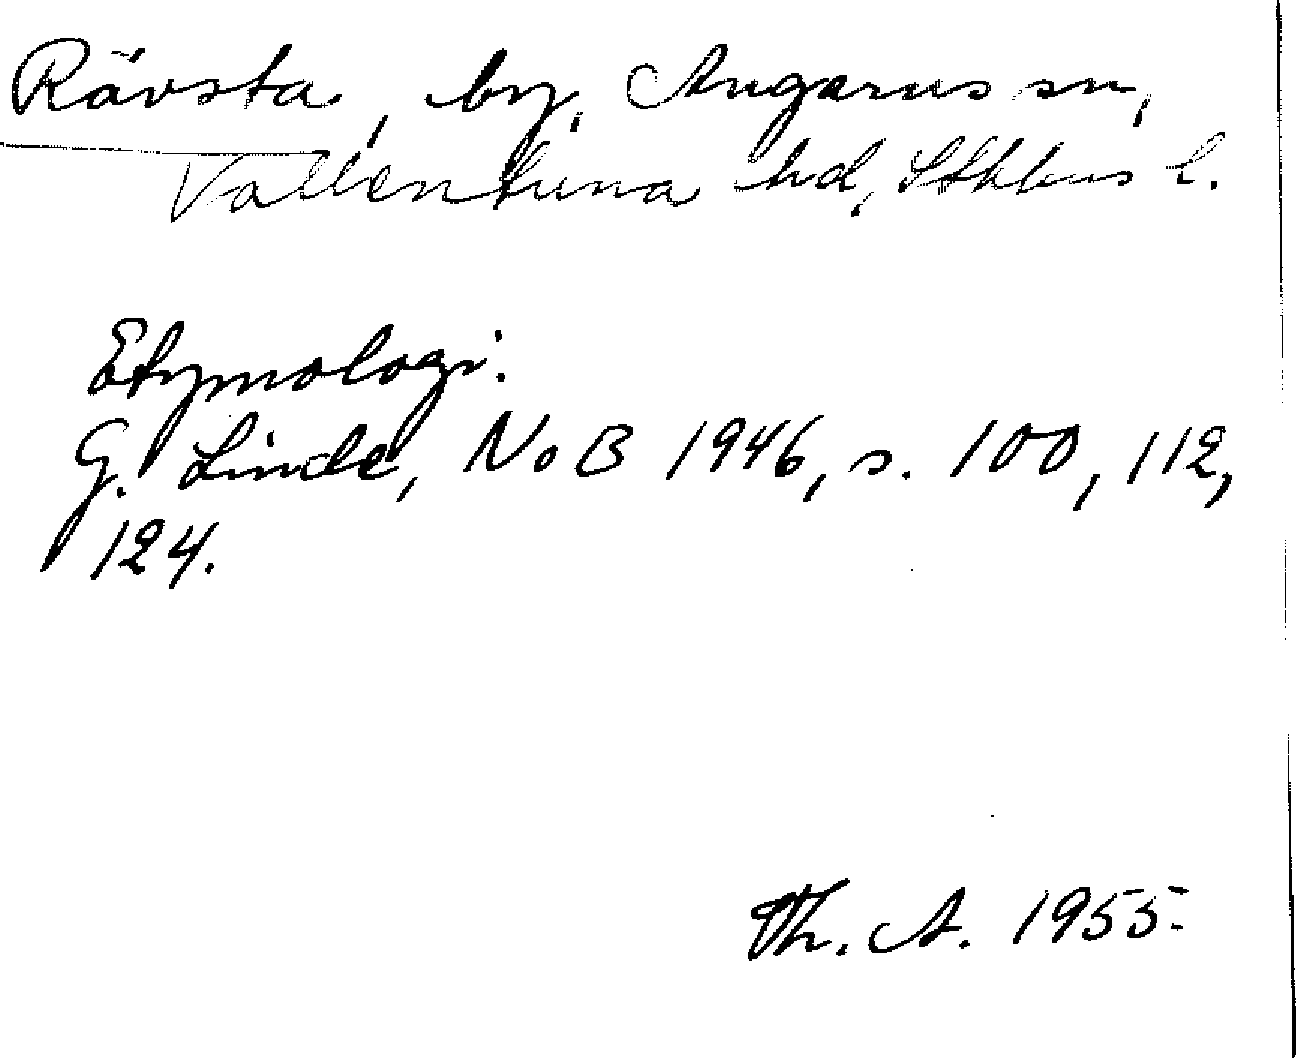 Rävsta, by, Angarns sn,
Vallentuna hd, Sthlms l.
Etymologi.
G. Linde, NoB 1946, s. 100, 112,
124.
Th. A. 1955.